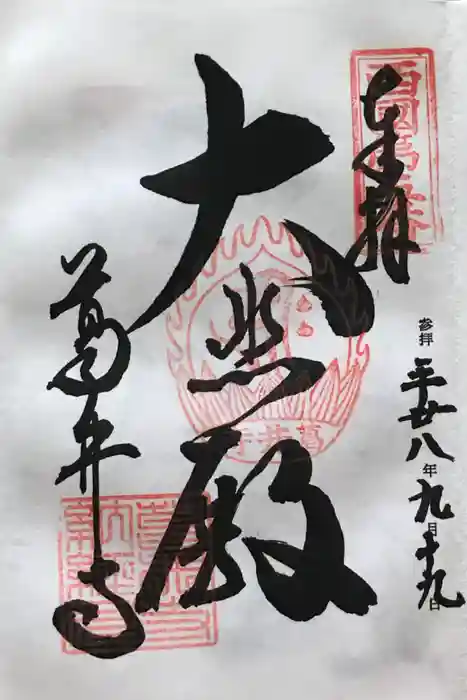 奉拝
西國第五番
参拝 平廿八年九月十九日
大悲殿
葛井寺
葛井寺